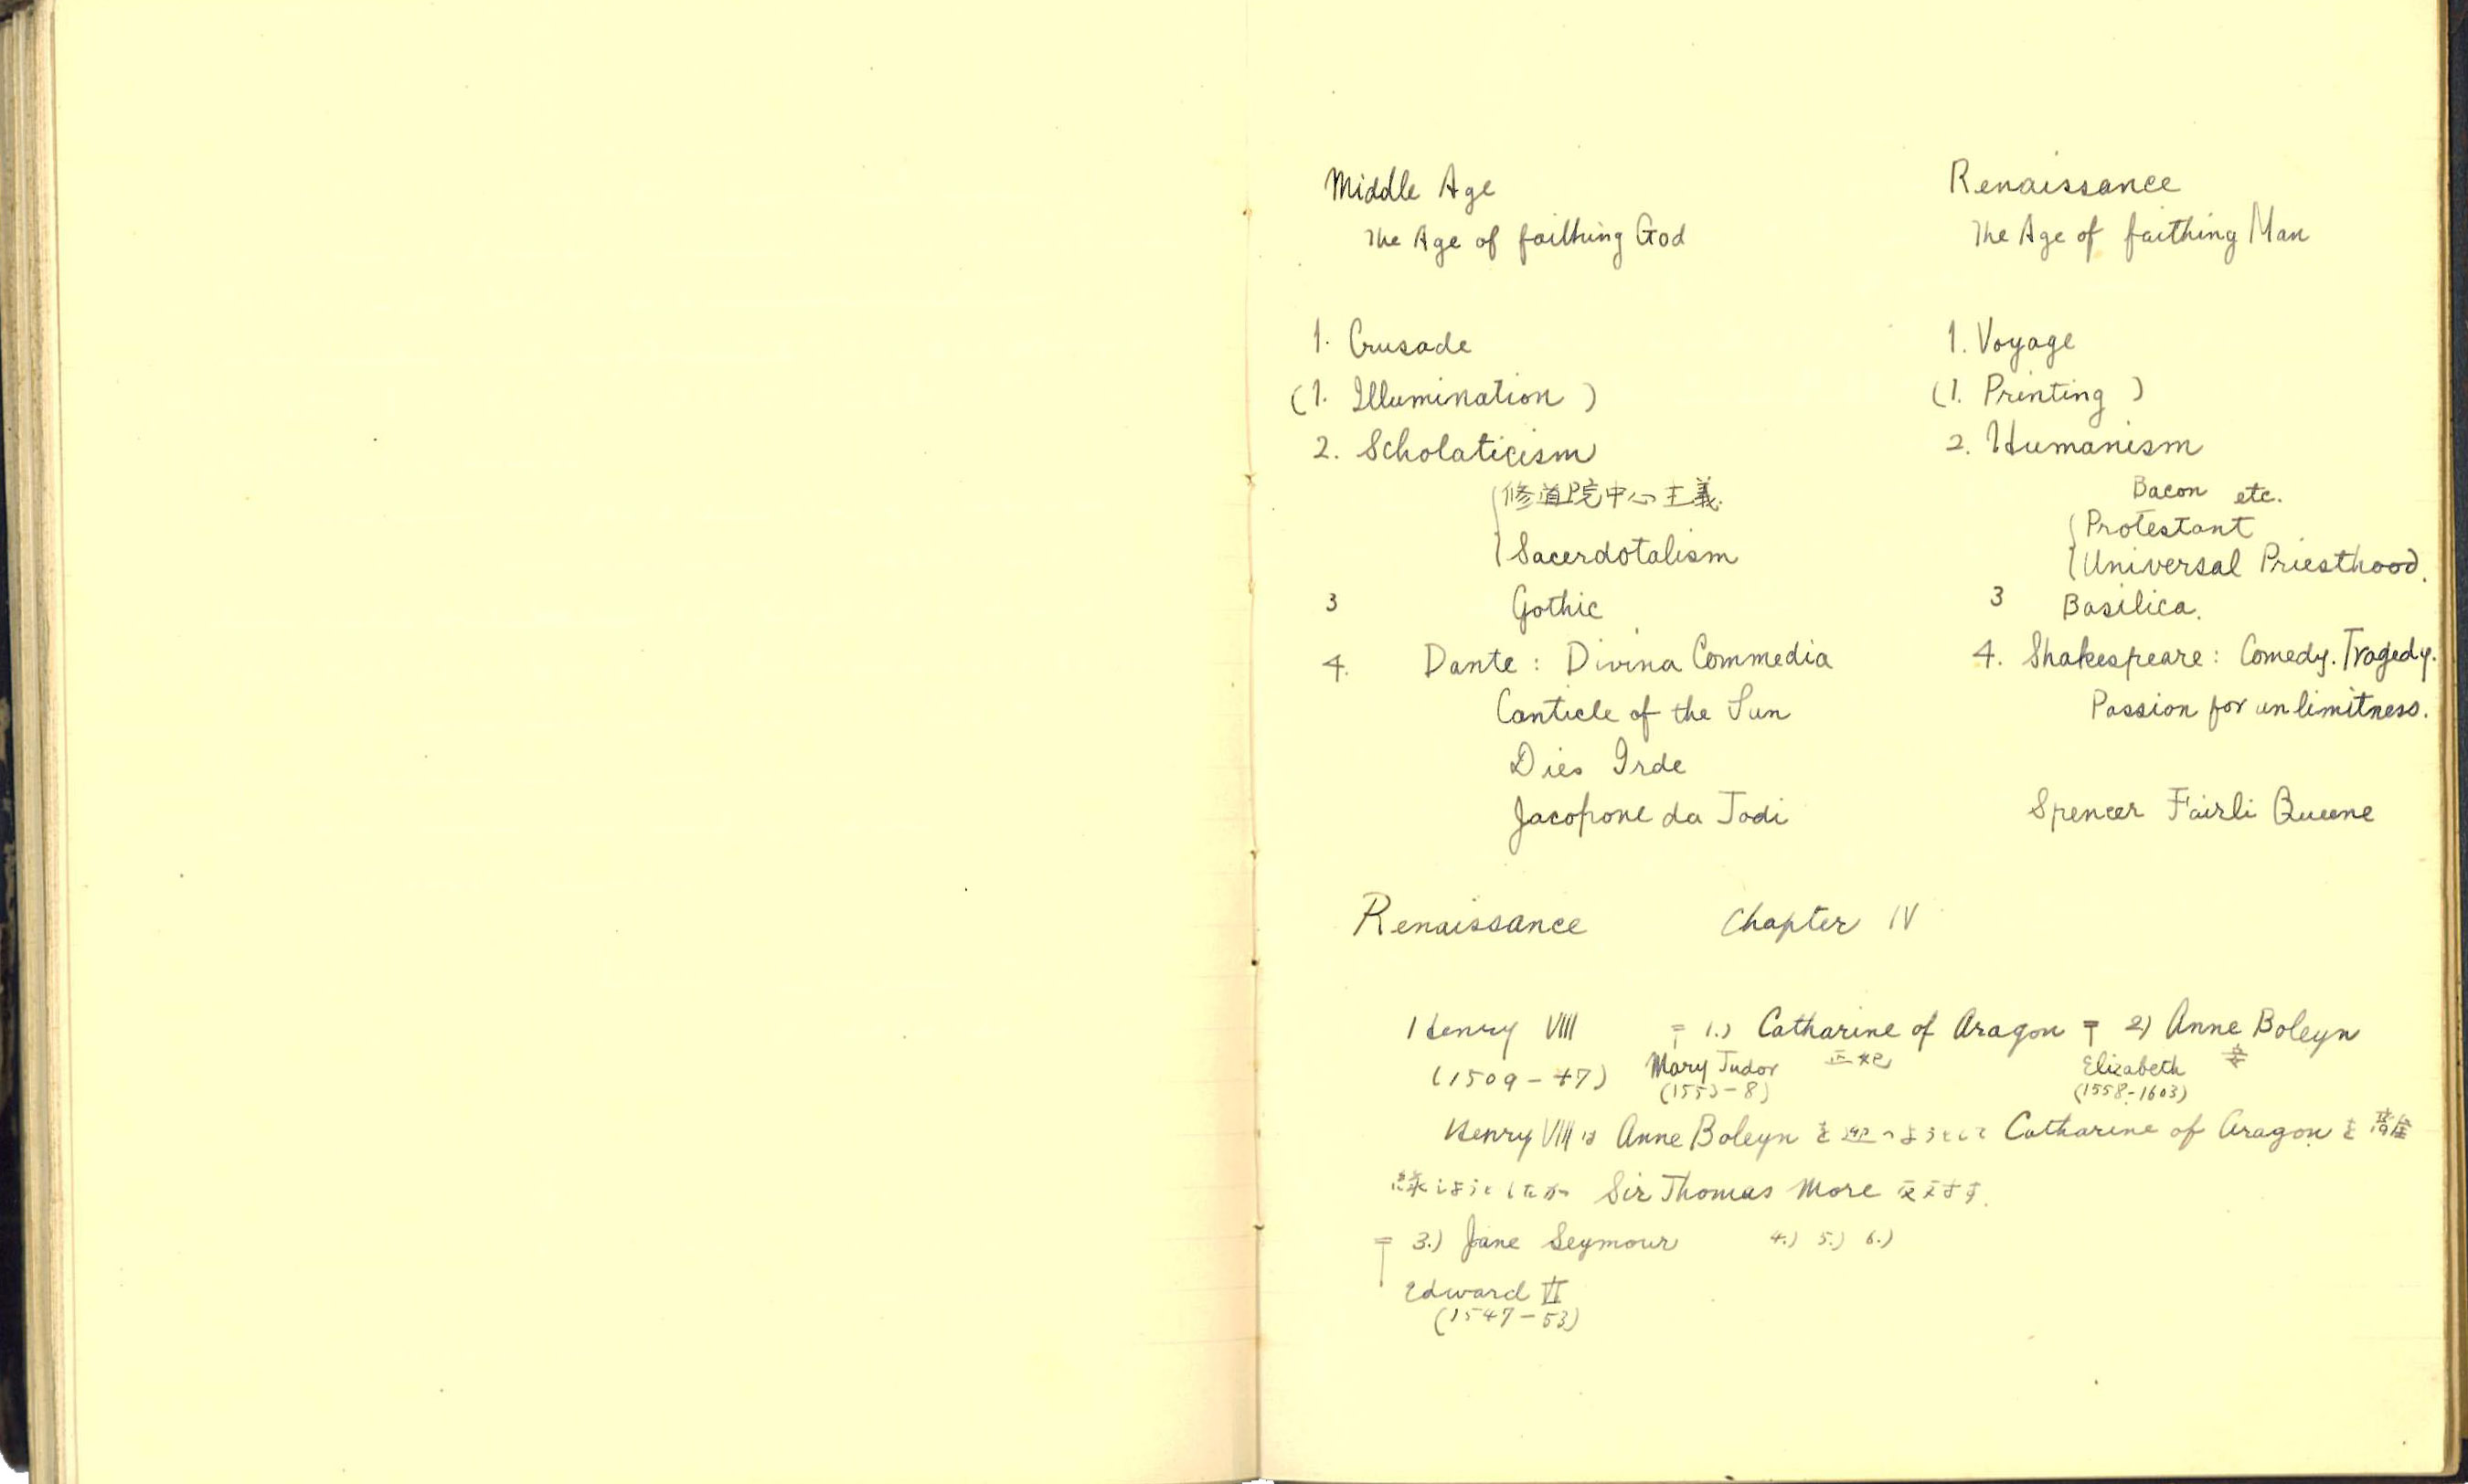 Middle Age
The Age of faithing God
1. Crusade
(1. Illumination )
2. Scholaticism
修道院中心主義.
Sacerdotalism
3 Gothic
4. Dante : Divina Commedia
Canticle of the Sun
Dies Irde
Jacopone da Todi
Renaissance
The Age of faithing Man
1. Voyage
(1. Printing )
2. Humanism
Bacon etc.
Protestant
Universal Priesthood.
3 Basilica.
4. Shakespeare : Comedy. Tragedy.
Passion for unlimitness.
Spencer Fairli Queene
Renaissance Chapter IV
Henry VIII = 1.) Catharine of Aragon = 2) Anne Boleyn
(1509 - 47) Mary Tudor 正妃 Elizabeth 妾
(1553 - 8) (1558 - 1603)
Henry VIII は Anne Boleyn を迎へようとして Catharine of Aragon を離
縁しようとしたが Sir Thomas More 反対す.
= 3.) Jane Seymour 4.) 5.) 6.)
Edward VI
(1547 - 53)